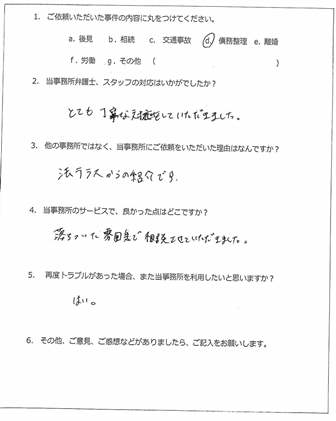 1. ご依頼いただいた事件の内容に丸をつけてください。
a. 後見 b. 相続 c. 交通事故 d. 債務整理 e. 離婚
f. 労働 g. その他 ( )
2. 当事務所弁護士、スタッフの対応はいかがでしたか？
とても丁寧な対応をしていただきました。
3. 他の事務所ではなく、当事務所にご依頼をいただいた理由はなんですか？
法テラスからの紹介です.
4. 当事務所のサービスで、良かった点はどこですか？
落ちついた雰囲気で相談させていただきました。
5. 再度トラブルがあった場合、また当事務所を利用したいと思いますか？
はい。
6. その他、ご意見、ご感想などがありましたら、ご記入をお願いします。